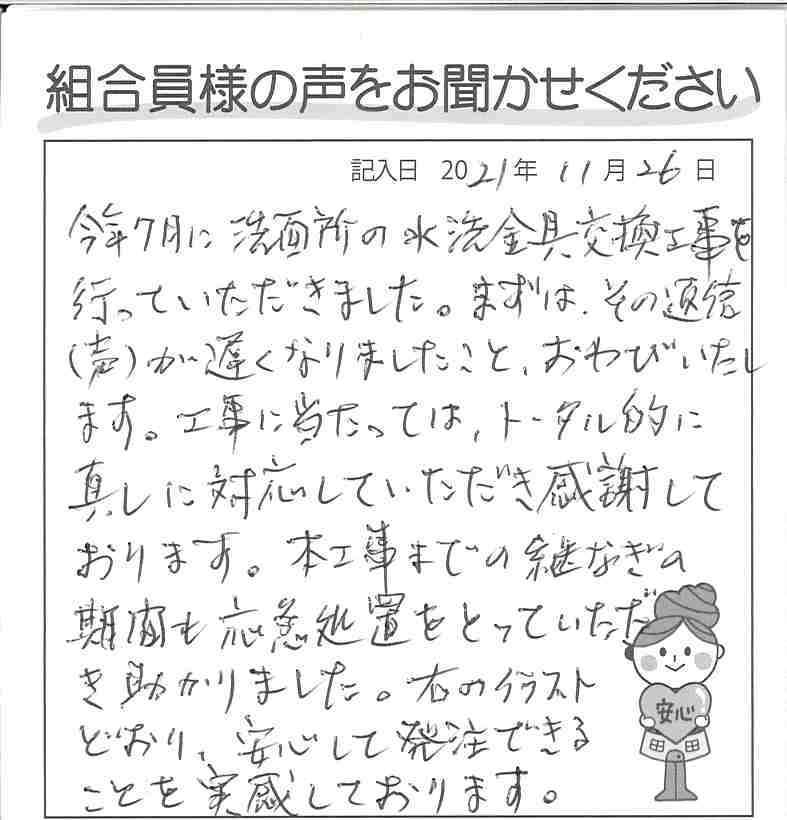 組合員様の声をお聞かせください
記入日 2021年 11月 26日
今年7月に洗面所の水洗金具交換工事を
行っていただきました。まずは、その返信
(声)が遅くなりましたこと、おわびいたし
ます。工事に当たっては、トータル的に
真しに対応していただき感謝して
おります。本工事までの継なぎの
期間も応急処置をとっていただ
き助かりました。右のイラスト
どおり、安心して発注できる
ことを実感しております。
安心